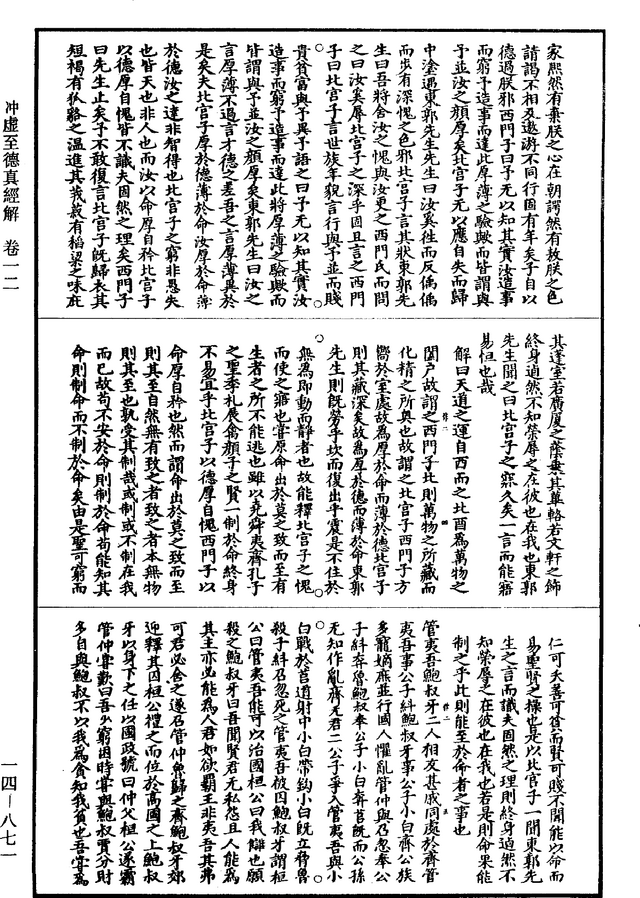 家熙然有棄朕之心在朝諤然有敖朕之色
請謁不相及遨遊不同行固有年矣子自以
德過朕邪西門子曰予无以知其實汝造事
而窮予造事而達此厚薄之驗歟而皆謂與
予並汝之顏厚矣北宮子无以應自失而歸
中塗遇東郭先生先生曰汝奚往而反偊偊
而步有深愧之色邪北宮子言其狀東郭先
生曰吾將舍汝之愧與汝更之西門氏而問
之曰汝奚辱北宮子之深乎固且言之西門
子曰北宮子言世族年貌言行與予並而賤
貴貧富與予異予語之曰予无以知其實汝
造事而窮予造事而達此將厚薄之驗歟而
皆謂與予並汝之顏厚矣東郭先生曰汝之
言厚薄不過言才德之差吾之言厚薄異於
是矣夫北宮子厚於德薄於命汝厚於命薄
於德汝之達非智得也北宮子之窮非愚失
也皆天也非人也而汝以命厚自矜北宮子
以德厚自愧皆不識夫固然之理矣西門子
曰先生止矣予不敢復言北宮子既歸衣其
短褐有狐貉之溫進其茙菽有稻粱之味庇
其蓬室若廣廈之蔭乘其蓽輅若文軒之飾
終身逌然不知榮辱之在彼也在我也東郭
先生聞之曰北宮子之寐久矣一言而能寤
易怛也哉
解曰天道之運自西而之北酉為萬物之
闔戶故謂之西門子北則萬物之所藏而
化精之所奧也故謂之北宮子西門子方
嚮於室處故為厚於命而薄於德北宮子
則其藏深矣故為厚於德而薄於命東郭
先生則既勞乎坎而復出乎震是不住於
無為即動而靜者也故能釋北宮子之愧
而使之寤也嘗原命出於莫之致而至有
生者之所不能逃也雖以堯舜夷齊孔子
之聖季札展禽顏子之賢一制於命終身
不易宜乎北宮子以德厚自愧西門子以
命厚自矜也然而謂命出於莫之致而至
則其至自然無有致之者致之者本無物
則其至也孰受其制哉或制或不制在我
而已故苟不安於命則制於命苟能知其
命則制命而不制於命矣由是聖可窮而
仁可夭善可貧而賢可賤不聞能以命而
易聖賢之操也是以北宮子一聞東郭先
生之言而識夫固然之理則終身逌然不
知榮辱之在彼也在我也若是則命果能
制之乎此則能至於命者之事也
管夷吾鮑叔牙二人相友甚戚同處於齊管
夷吾事公子糾鮑叔牙事公子小白齊公族
多寵嫡庶並行國人懼亂管仲與召忽奉公
子糾奔魯鮑叔奉公子小白奔莒既而公孫
无知作亂齊无君二公子爭入管夷吾與小
白戰於莒道射中小白帶鉤小白既立脅魯
殺子糾召忽死之管夷吾被囚鮑叔牙謂桓
公曰管夷吾能可以治國桓公曰我讎也願
殺之鮑叔牙曰吾聞賢君无私怨且人能為
其主亦必能為人君如欲霸王非夷吾其弗
可君必舍之遂召管仲魯歸之齊鮑叔牙郊
迎釋其囚桓公禮之而位於高國之上鮑叔
牙以身下之任以國政號曰仲父桓公遂霸
管仲嘗歎曰吾少窮困時嘗與鮑叔賈分財
多自與鮑叔不以我為貪知我貧也吾嘗為
冲虛至德真經解 卷一二
一四—八七一